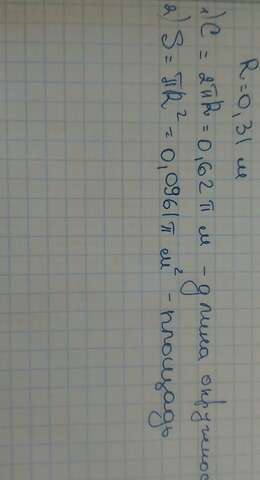 R=0,31 м
1) C = 2πR = 0,62 π м - длина окружнос
2) S = πR² = 0,0961π м² - площадь